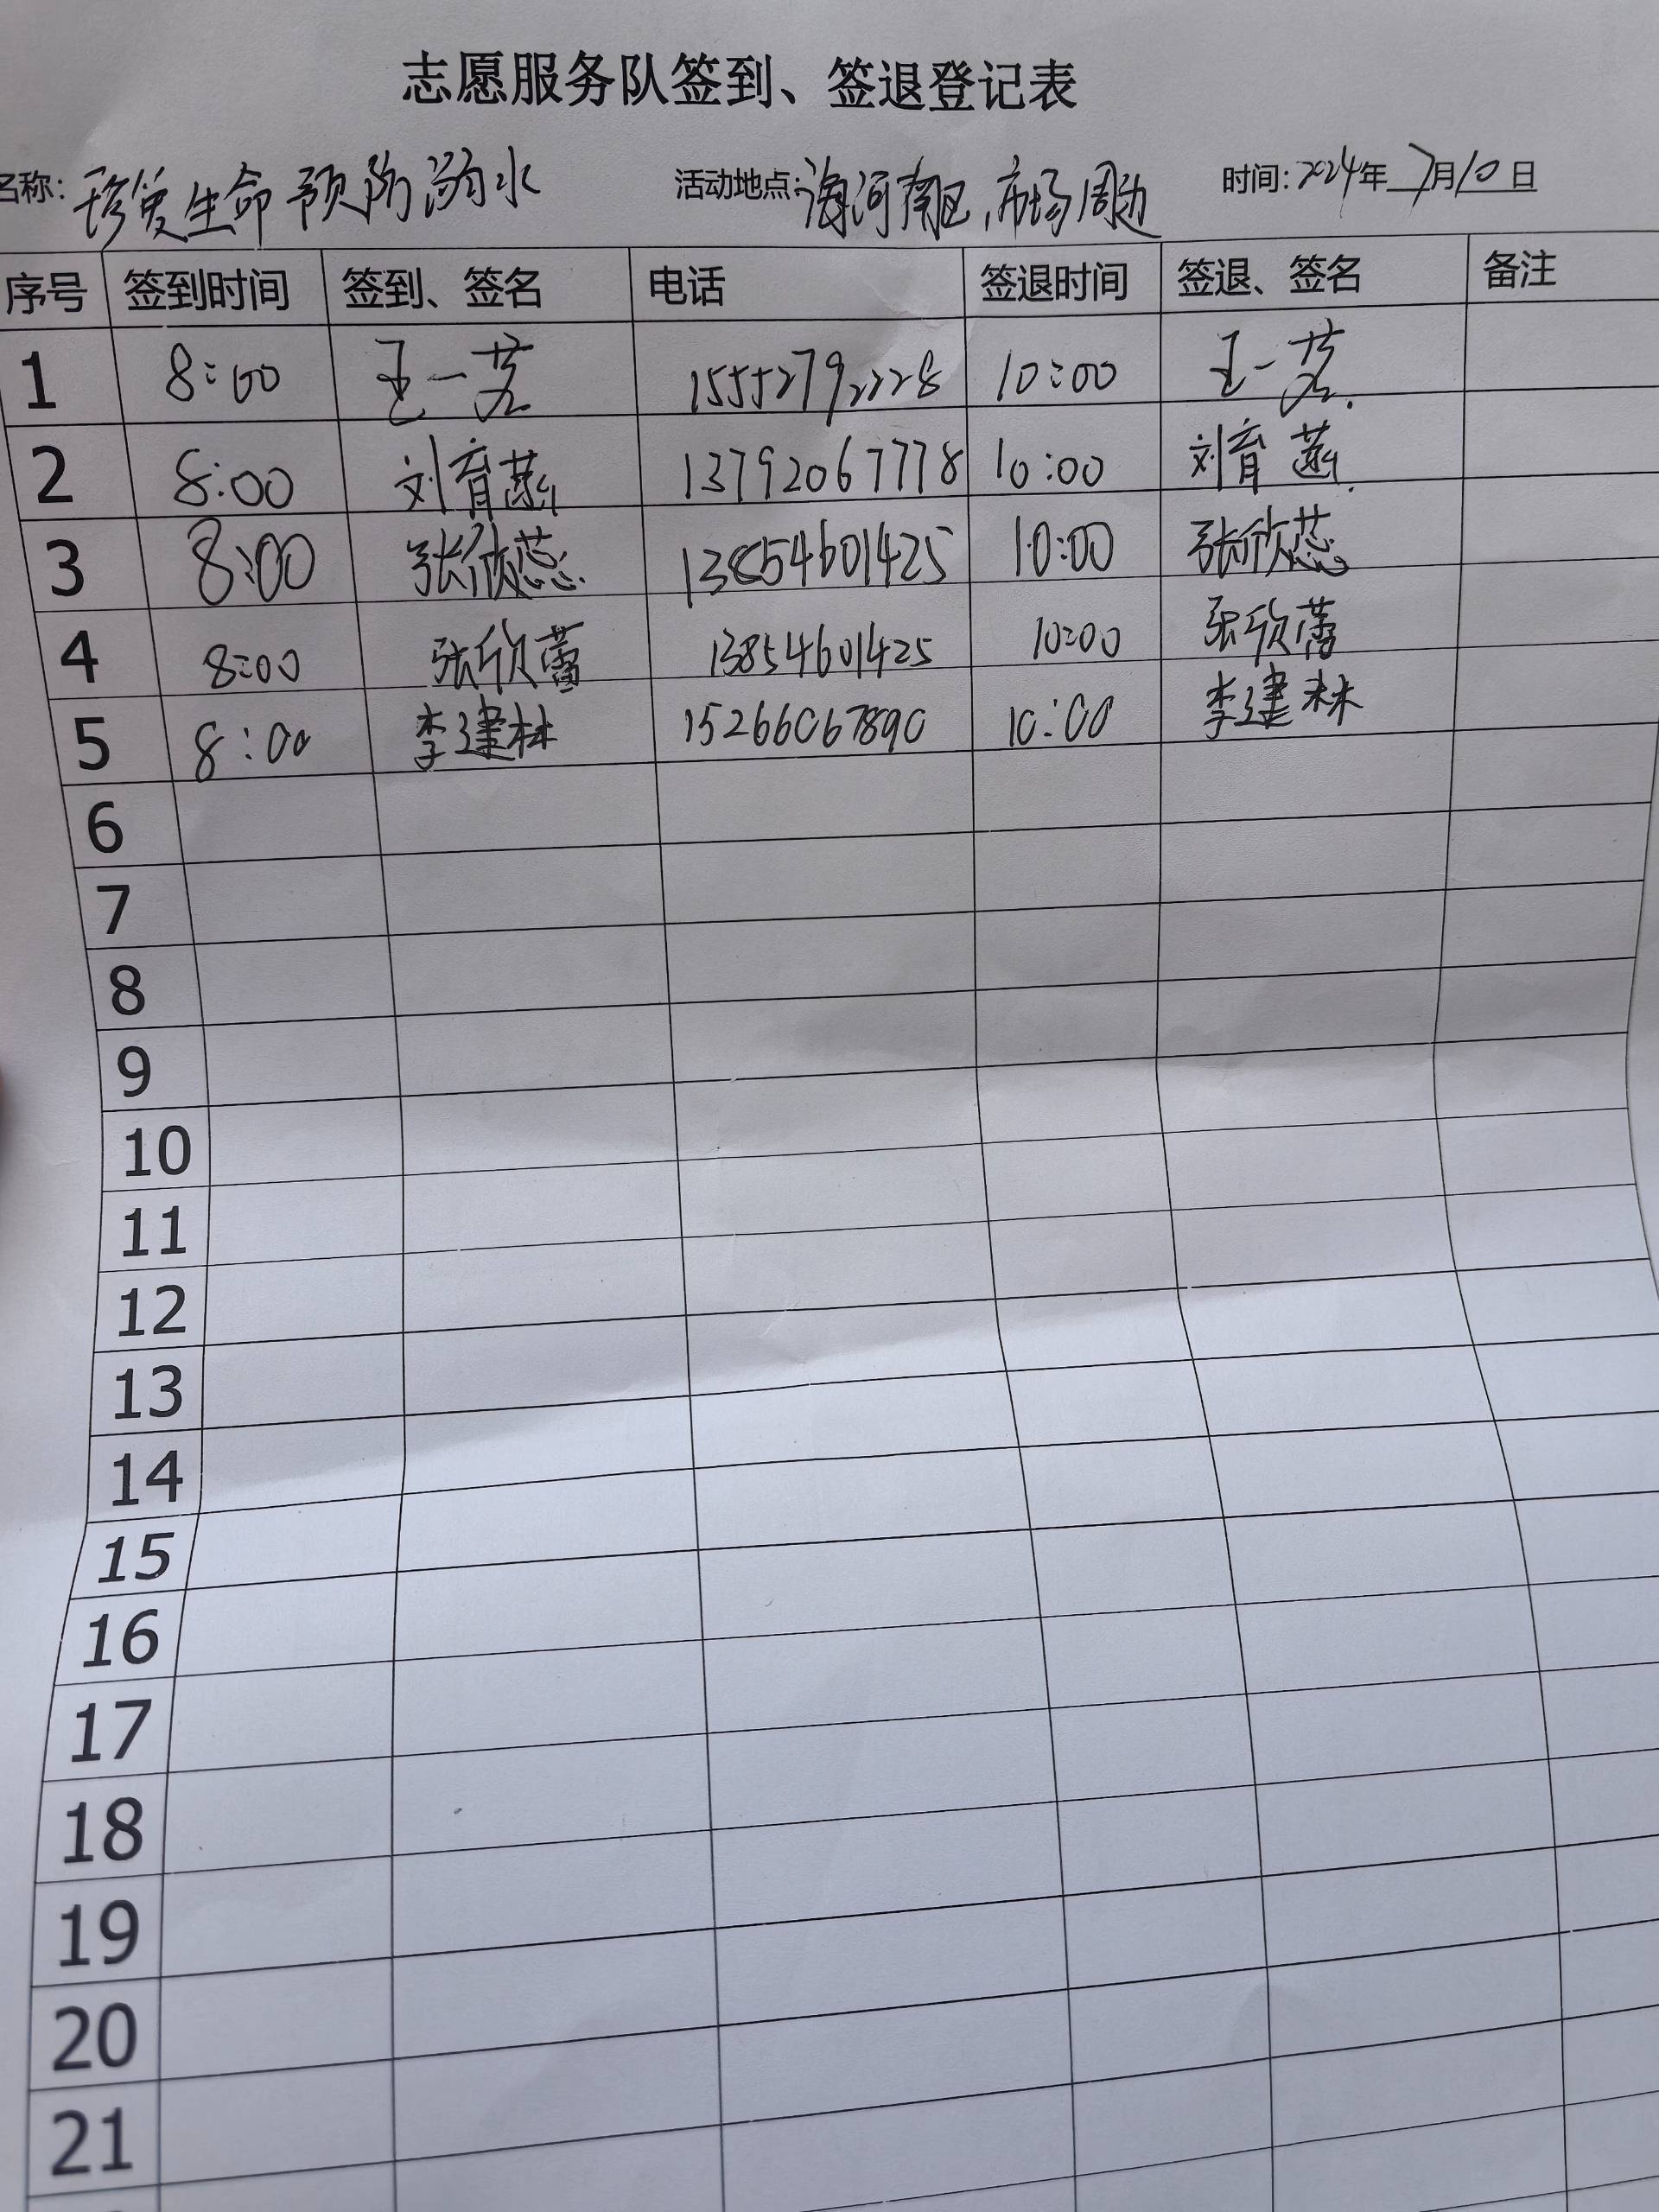 志愿服务队签到、签退登记表
名称: 珍爱生命 预防溺水 活动地点: 海河南区,市场周边 时间: 2024年 7月10日
序号 签到时间 签到、签名 电话 签退时间 签退、签名 备注
1 8:00 王一 15552792228 10:00 王一
2 8:00 刘育菡 13792067778 10:00 刘育菡
3 8:00 张欣蕊 13854601425 10:00 张欣蕊
4 8:00 张欣蕾 13854601425 10:00 张欣蕾
5 8:00 李建林 15266067890 10:00 李建林
6
7
8
9
10
11
12
13
14
15
16
17
18
19
20
21